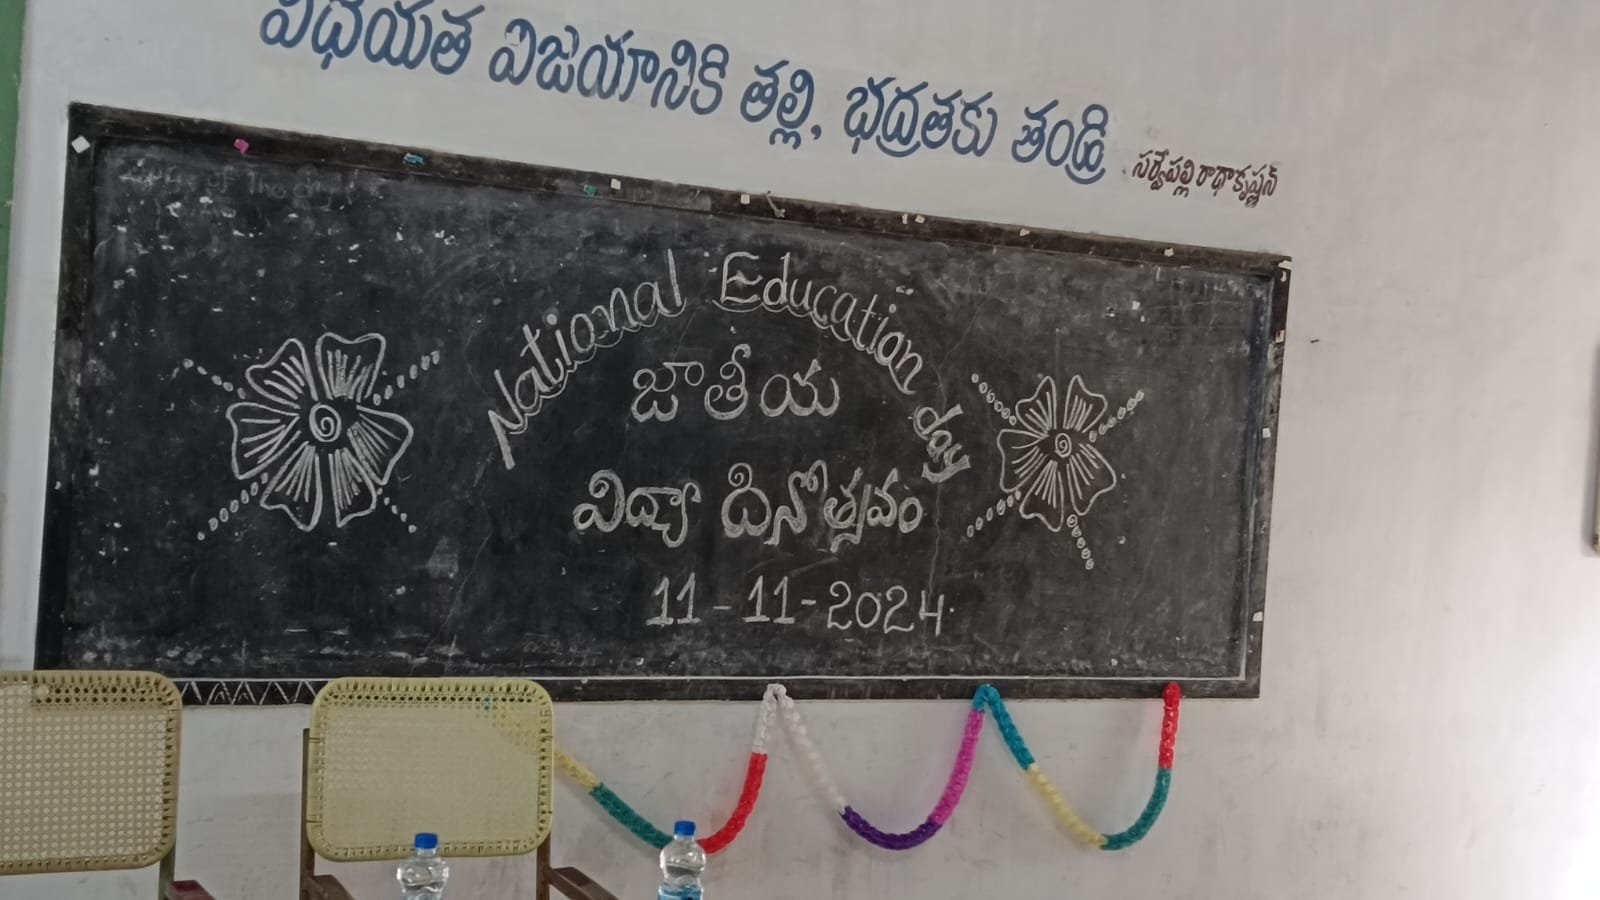 విధేయత విజయానికి తల్లి, భద్రతకు తండ్రి
సర్వేపల్లి రాధాకృష్ణన్
National Education day
జాతీయ
విద్యా దినోత్సవం
11-11-2024.